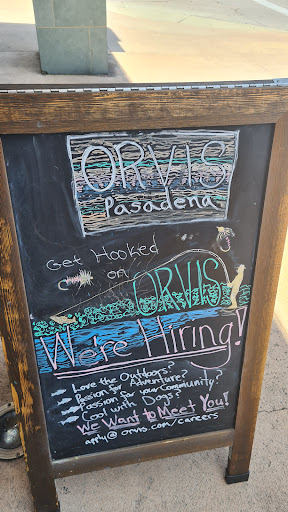 ORVIS
Pasadena
Get Hooked
on
ORVIS
We're Hiring!
Love the Outdoors?
Passion for Adventure?
Passion for your Community?
Cool with Dogs?
We Want to Meet You!
apply@orvis.com/careers